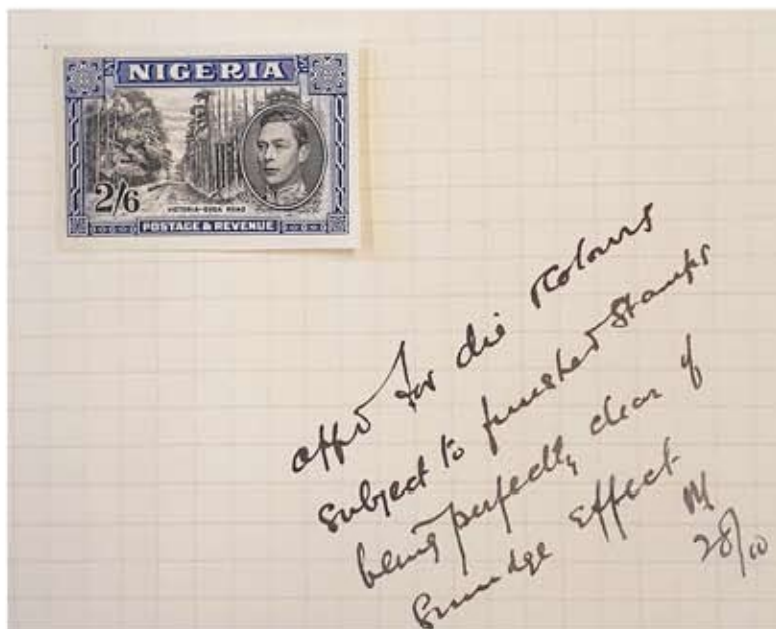 NIGERIA
2/6
VICTORIA-BUEA ROAD
POSTAGE & REVENUE
Appd for die colours
subject to finished stamps
being perfectly clear of
smudge effect
28/10